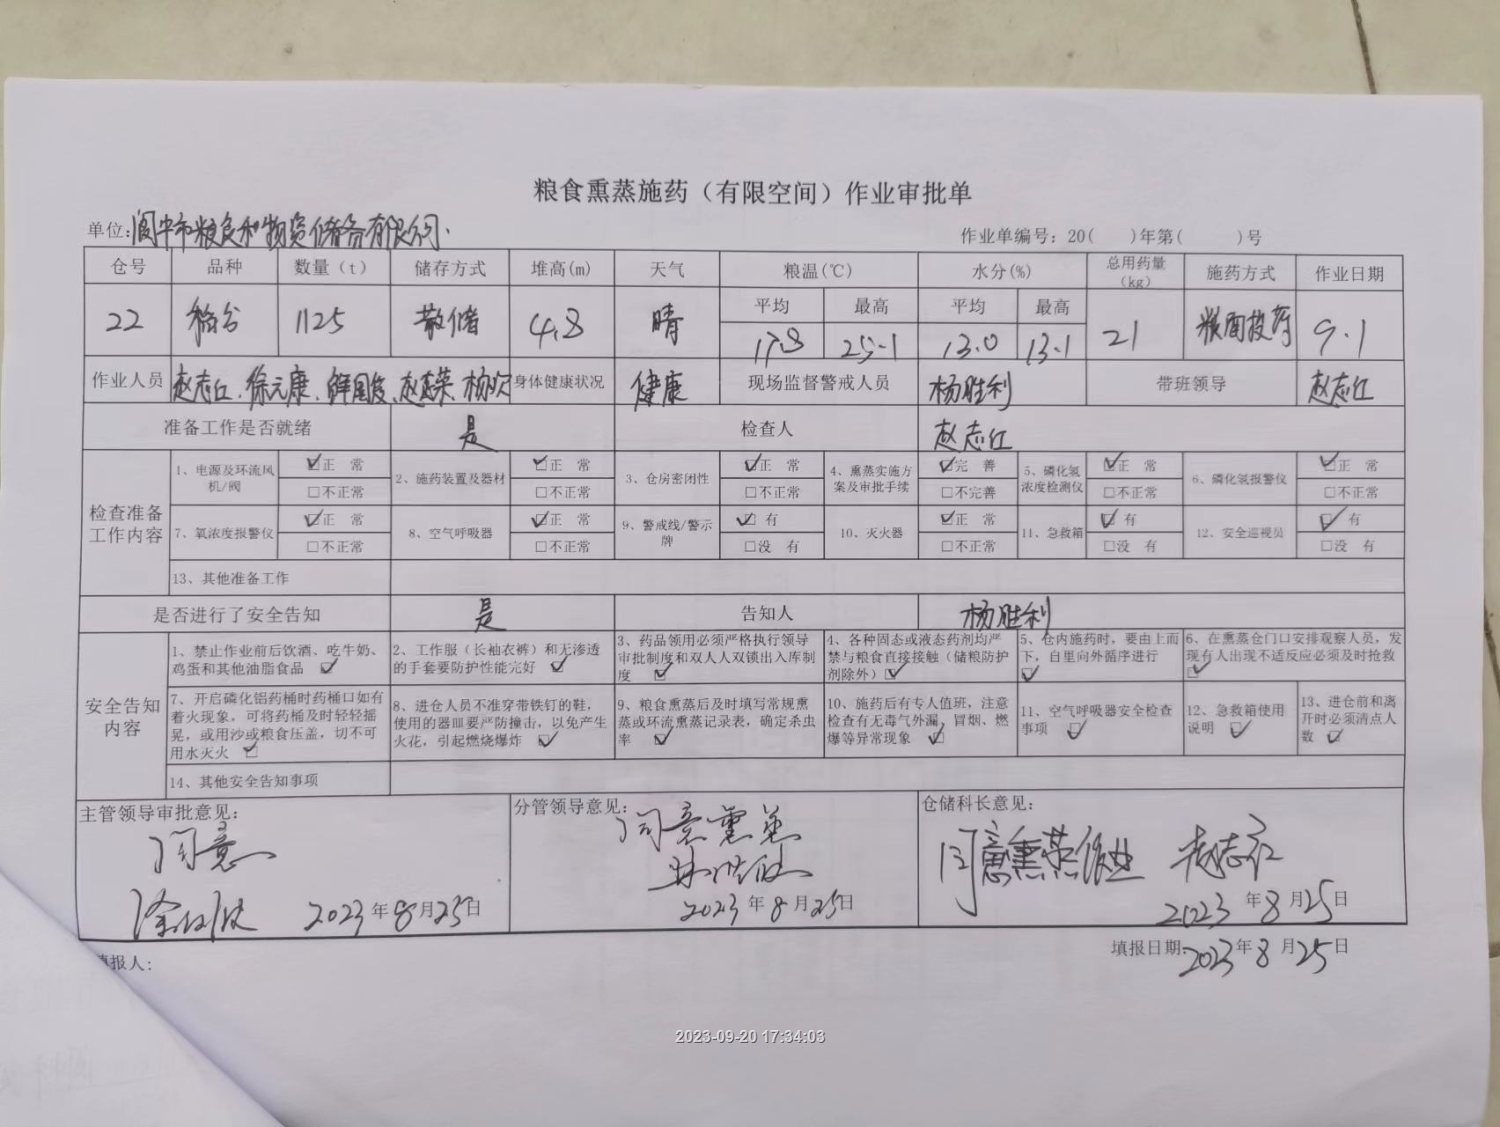 粮食熏蒸施药（有限空间）作业审批单
单位:阆中市粮食和物资储备有限公司. 作业单编号：20( )年第( )号
仓号 品种 数量（t） 储存方式 堆高(m) 天气 粮温(℃) 水分(%) 总用药量（kg） 施药方式 作业日期
平均 最高 平均 最高
22 稻谷 1125 散储 4.8 晴 17.8 25.1 13.0 13.1 21 粮面投药 9.1
作业人员 赵志红、徐元康、鲜国 、赵 荣、杨 身体健康状况 健康 现场监督警戒人员 杨胜利 带班领导 赵志红
准备工作是否就绪 是 检查人 赵志红
检查准备工作内容
1、电源及环流风机/阀 ☑正 常 □不正常
2、施药装置及器材 ☑正 常 □不正常
3、仓房密闭性 ☑正 常 □不正常
4、熏蒸实施方案及审批手续 ☑完 善 □不完善
5、磷化氢浓度检测仪 ☑正 常 □不正常
6、磷化氢报警仪 ☑正 常 □不正常
7、氧浓度报警仪 ☑正 常 □不正常
8、空气呼吸器 ☑正 常 □不正常
9、警戒线/警示牌 ☑有 □没 有
10、灭火器 ☑正 常 □不正常
11、急救箱 ☑有 □没 有
12、安全巡视员 ☑有 □没 有
13、其他准备工作
是否进行了安全告知 是 告知人 杨胜利
安全告知内容
1、禁止作业前后饮酒、吃牛奶、鸡蛋和其他油脂食品 ☑
2、工作服（长袖衣裤）和无渗透的手套要防护性能完好 ☑
3、药品领用必须严格执行领导审批制度和双人双锁出入库制度 ☑
4、各种固态或液态药剂均严禁与粮食直接接触（储粮防护剂除外）☑
5、仓内施药时，要由上而下，自里向外循序进行 ☑
6、在熏蒸仓门口安排观察人员，发现有人出现不适反应必须及时抢救 ☑
7、开启磷化铝药桶时药桶口如有着火现象，可将药桶及时轻轻摇晃，或用沙或粮食压盖，切不可用水灭火 ☑
8、进仓人员不准穿带铁钉的鞋，使用的器皿要严防撞击，以免产生火花，引起燃烧爆炸 ☑
9、粮食熏蒸后及时填写常规熏蒸或环流熏蒸记录表，确定杀虫率 ☑
10、施药后有专人值班，注意检查有无毒气外漏，冒烟、燃爆等异常现象 ☑
11、空气呼吸器安全检查事项 ☑
12、急救箱使用说明 ☑
13、进仓前和离开时必须清点人数 ☑
14、其他安全告知事项
主管领导审批意见：
同意
2023年8月25日
分管领导意见：
同意熏蒸
2023年8月25日
仓储科长意见：
同意熏蒸作业 赵志红
2023年8月25日
填报人： 填报日期：2023年8月25日
2023-09-20 17:34:03